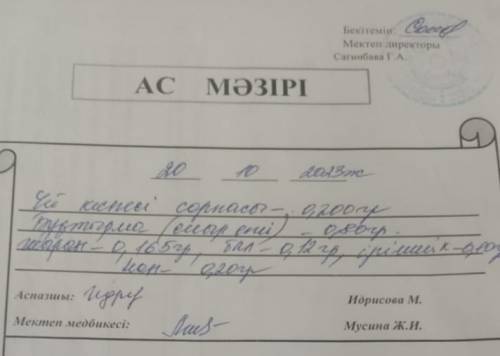 Бекітемін:
Мектеп директоры
Сагинбаева Г.А.
АС МӘЗІРІ
20 10 2023ж
Үй кеспесі сорпасы – 0,200гр
Тұшпарма (сиыр еті) – 0,80гр.
макарон – 0,165гр, бал – 0,12гр, ірімшік – 0,00
нан – 0,20гр
Аспазшы: Идрис Идрисова М.
Мектеп медбикесі: Мусина Ж.И.